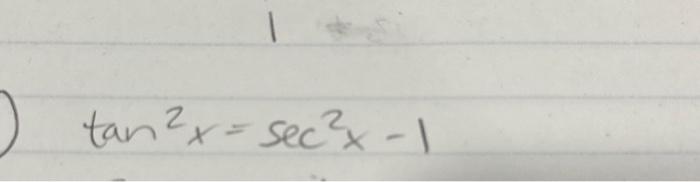 1
) tan²x = sec²x - 1